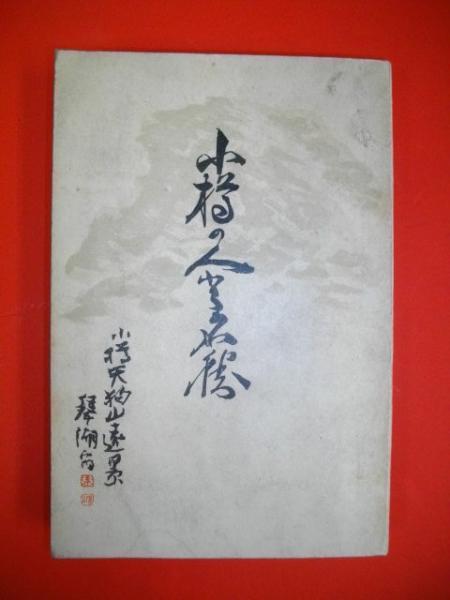 小樽の人と名勝
小樽天狗山遠景
琴湖